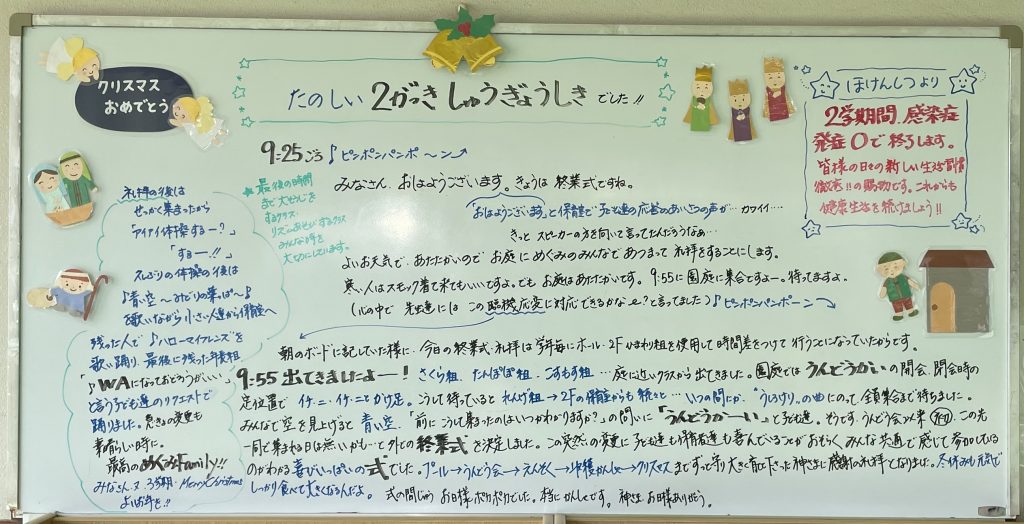 クリスマス
おめでとう
たのしい 2がっき しゅうぎょうしき でした!!
ほけんしつより
2学期間、感染症
発症0で終了します。
皆様の日々の新しい生活習慣
徹底!!の賜物です。これからも
健康生活を続けましょう!!
9:25ごろ♪ピンポンパンポ〜ン
みなさん、おはようございます。きょうは終業式ですね。
「おはようございます」と保育室で子ども達の応答のあいさつの声が…カワイイ…
きっと スピーカーの方を向いて言ってたんだろうなぁ…
よいお天気で、あたたかいので お庭に めぐみのみんなで あつまって 礼拝をすることにします。
寒い人はスモック着て来てもいいですよ。でも お庭はあたたかいです。9:55に園庭に集合ですよー。待ってますよ。
(心の中で 先生達には この臨機応変に対応できるかな〜?と言ってました)♪ピンポンパンポーン
★最後の時間
まで大そうじを
するクラス
リズムあそびするクラス
みんな時を
大切にしています。
朝のボードに記していた様に、今日の終業式、礼拝は学年毎にホール・2Fゆり組を使用して時間差をつけて行うことになっていたからです。
9:55 出てきましたよー! さくら組、たんぽぽ組、こすもす組…庭に近いクラスから出てきました。園庭では うんどうかいの開会、閉会時の
定位置で イチ、ニ・イチ、ニとかけ足。こうして待っていると れんげ組→2Fの保育室からも続々と…いつの間にか、「うろちり」の曲にのって 全員集合まで待ちました。
みんなで空を見上げると 青い空、「前にこうして集まったのはいつかわかりますか?」の問いに「うんどうかーい」と子ども達。そうです。うんどう会以来 この先
一同で集まれる日は無いかも…と外での終業式を決定しました。この突然の変更に子ども達も保育者達も喜んでいることが おそらく みんな共通で感じて参加している
のがわかる 喜びいっぱいの式でした。プール→うんどう会→えんそく→収穫かんしゃ→クリスマスまでずっと守り大きく育て下さった神さまに感謝の礼拝となりました。冬休みも元気で
しっかり食べて大きくなるんだよ。 式の間じゅう お日様ポカポカでした。本当にかんしゃです。神さま お日様ありがとう。
礼拝の後は
せっかく集まったから
「アイアイ体操する〜?」
「するー!!」
久しぶりの体操の後は
♪青い空〜みどりの葉っぱ〜♪
を歌いながら 小さい人達から保育室へ
残った人で♪ハローマイフレンズを
歌い踊り、最後に残った年長組
「♪WAになっておどろうがいい」
と言う子ども達のリクエストで
踊りました。急きの変更も
素晴らしい時に。
最高のめぐみFamily!!
みなさん、又、3学期・Merry Christmas
よいお年を!!